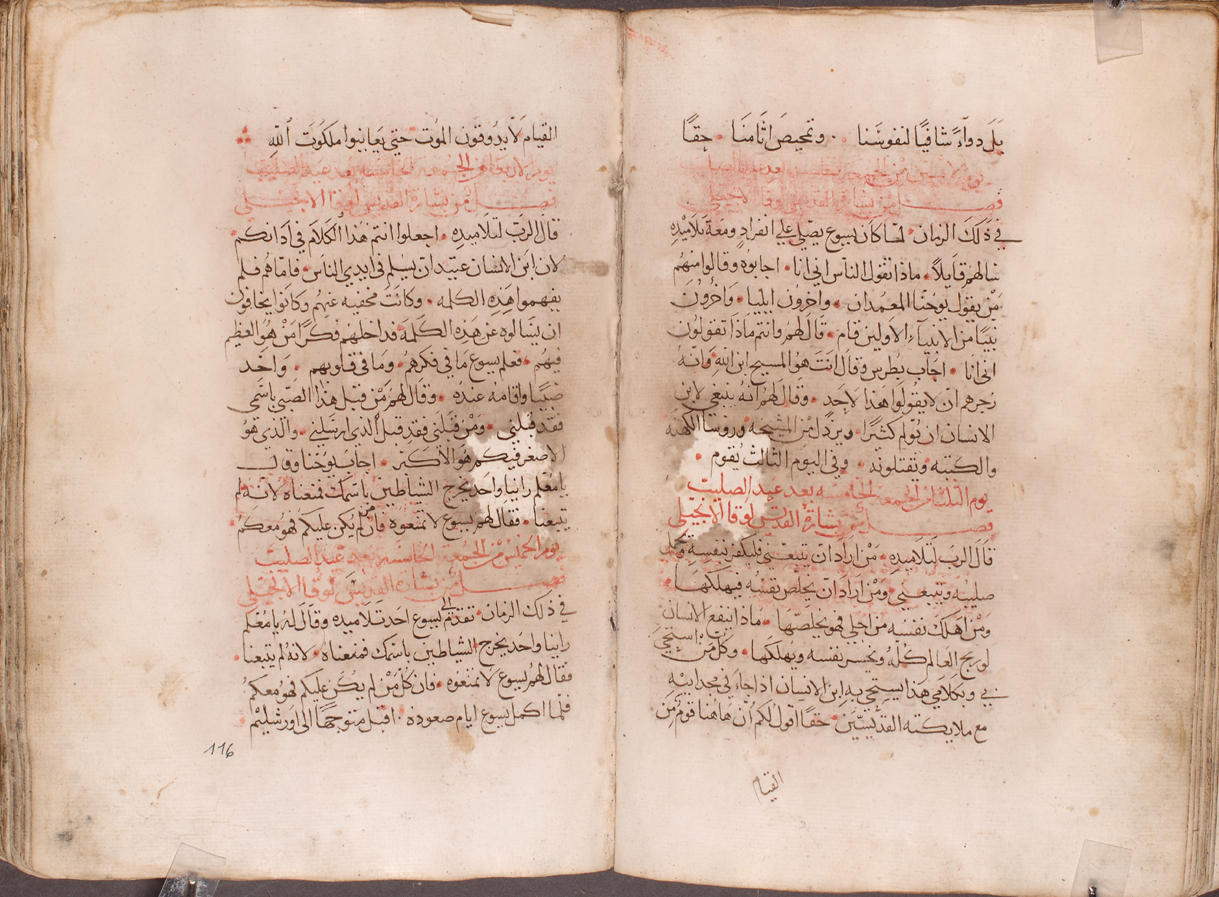 بلى دواءً شافيًا لنفوسَنا . وتمحيصَ اثامَنا . حِقًا
يوم الاثنين من الجمعة بعد عيد الصليب
فصل من بشارة القديس لوقا الانجيلي
في ذلك الزمان . لما كان يسوع يصلي على انفرادٍ ومعهُ تلاميْذِه
سالهم قايلاً . ماذا تقول الناس اني انا . اجابوه وقالوا منهم
مَنْ يقول يوحنا المعمدان . واخرون ايليا . واخرون
نبيًا من الانبيآء الاولين قام . قال لهم وانتم ماذا تقولون
اني انا . اجاب بطرس وقال انتَ هو المسيح ابن الله وانهُ
زجرهم ان لا يقولوا هذا لاحدٍ . وقال لهم انه ينبغي لابن
الانسان ان يُولم كثيرًا . ويرذل من المشيخه وروسآ الكهنه
والكتبه ويقتلونه . وفي اليوم الثالث يُقوم .
يوم الثلثا من الجمعة الخامسه بعد عيد الصليب
فصل من بشارة القديس لوقا الانجيلي
قال الرب لتلاميذِه . مَنْ ارادَ ان يتبعَني فليكفر بنفسِهِ ويحمل
صليبهُ ويتبعني . ومَنْ ارادَ ان يخلص نفسهُ فيهلكها
ومَنْ اهلك نفسَه من اجلي فهو يخلصها . ماذا ينفع الانسان
لو ربح العالم كُلّهُ ويخسر نفسه ويهلكها . وكل مَنْ استحيَ
بي وبكلامي هذا يستحي بهِ ابن الانسان اذا جاء في مجد ابيْه
مع ملايكته القدّيسيّن . حقًا اقول لكُم أن هاهنا قوم مَن
القيام
القيام لَا يدوقون الموْت حَتى يعاينوا ملكوت اللهِ
يوم الاربعا من الجمعة الخامسة بعد عيد الصليب
فصل من بشارة القديس لوقا الانجيلي
قال الربّ لتلاميذِه . اجعلوا انتم هذا الكلامَ في اذانكم .
لان ابن الانسان عتيد ان يسلم في ايدي الناس . فاما هم فلم
يفهموا هذِهِ الكلمه . وكانت مخفيه عنهم وكانوا يخافون
ان يسالوه عن هذِه الكلمة فداخلهم فكرًا مَنْ هو العظم
فيهم . فعلم يسوع ما في فكرهم . وما في قلوبهم . واخد
صبيًا واقامهُ عندهُ . وقال لهم مَنْ قبل هذا الصبي باسمي
فقد قبلني . ومَنْ قبلني فقد قبل الذي ارسَلني . والذي هو
الاصغر فيكم هو الاكبر . اجابَ يوحنا وقال
يا معلم راينا واحد يخرج الشياطين باسمك فمنعناه لانه لم
يتبعنا . فقال لهم يسوع لا تمنعوه فان مَن لم يكن عليكم فهو معكم
يوم الخميس من الجمعة الخامسة بعد عيد الصليب
فصل من بشارة القديس لوقا الانجيلي
في ذلك الزمان . تقدم الى يسوع احد تلاميذِه وقال له يا معلم
راينا واحد يخرج الشياطين باسمك فمنعناه . لانه لم يتبعنا .
فقال لهم يسوع لا تمنعوه . فان كل مَنْ لم يكن عليكم فهو معكم
فلما اكمل يسوع ايام صعوده . اقبل متوجهًا الى اورشليم
116